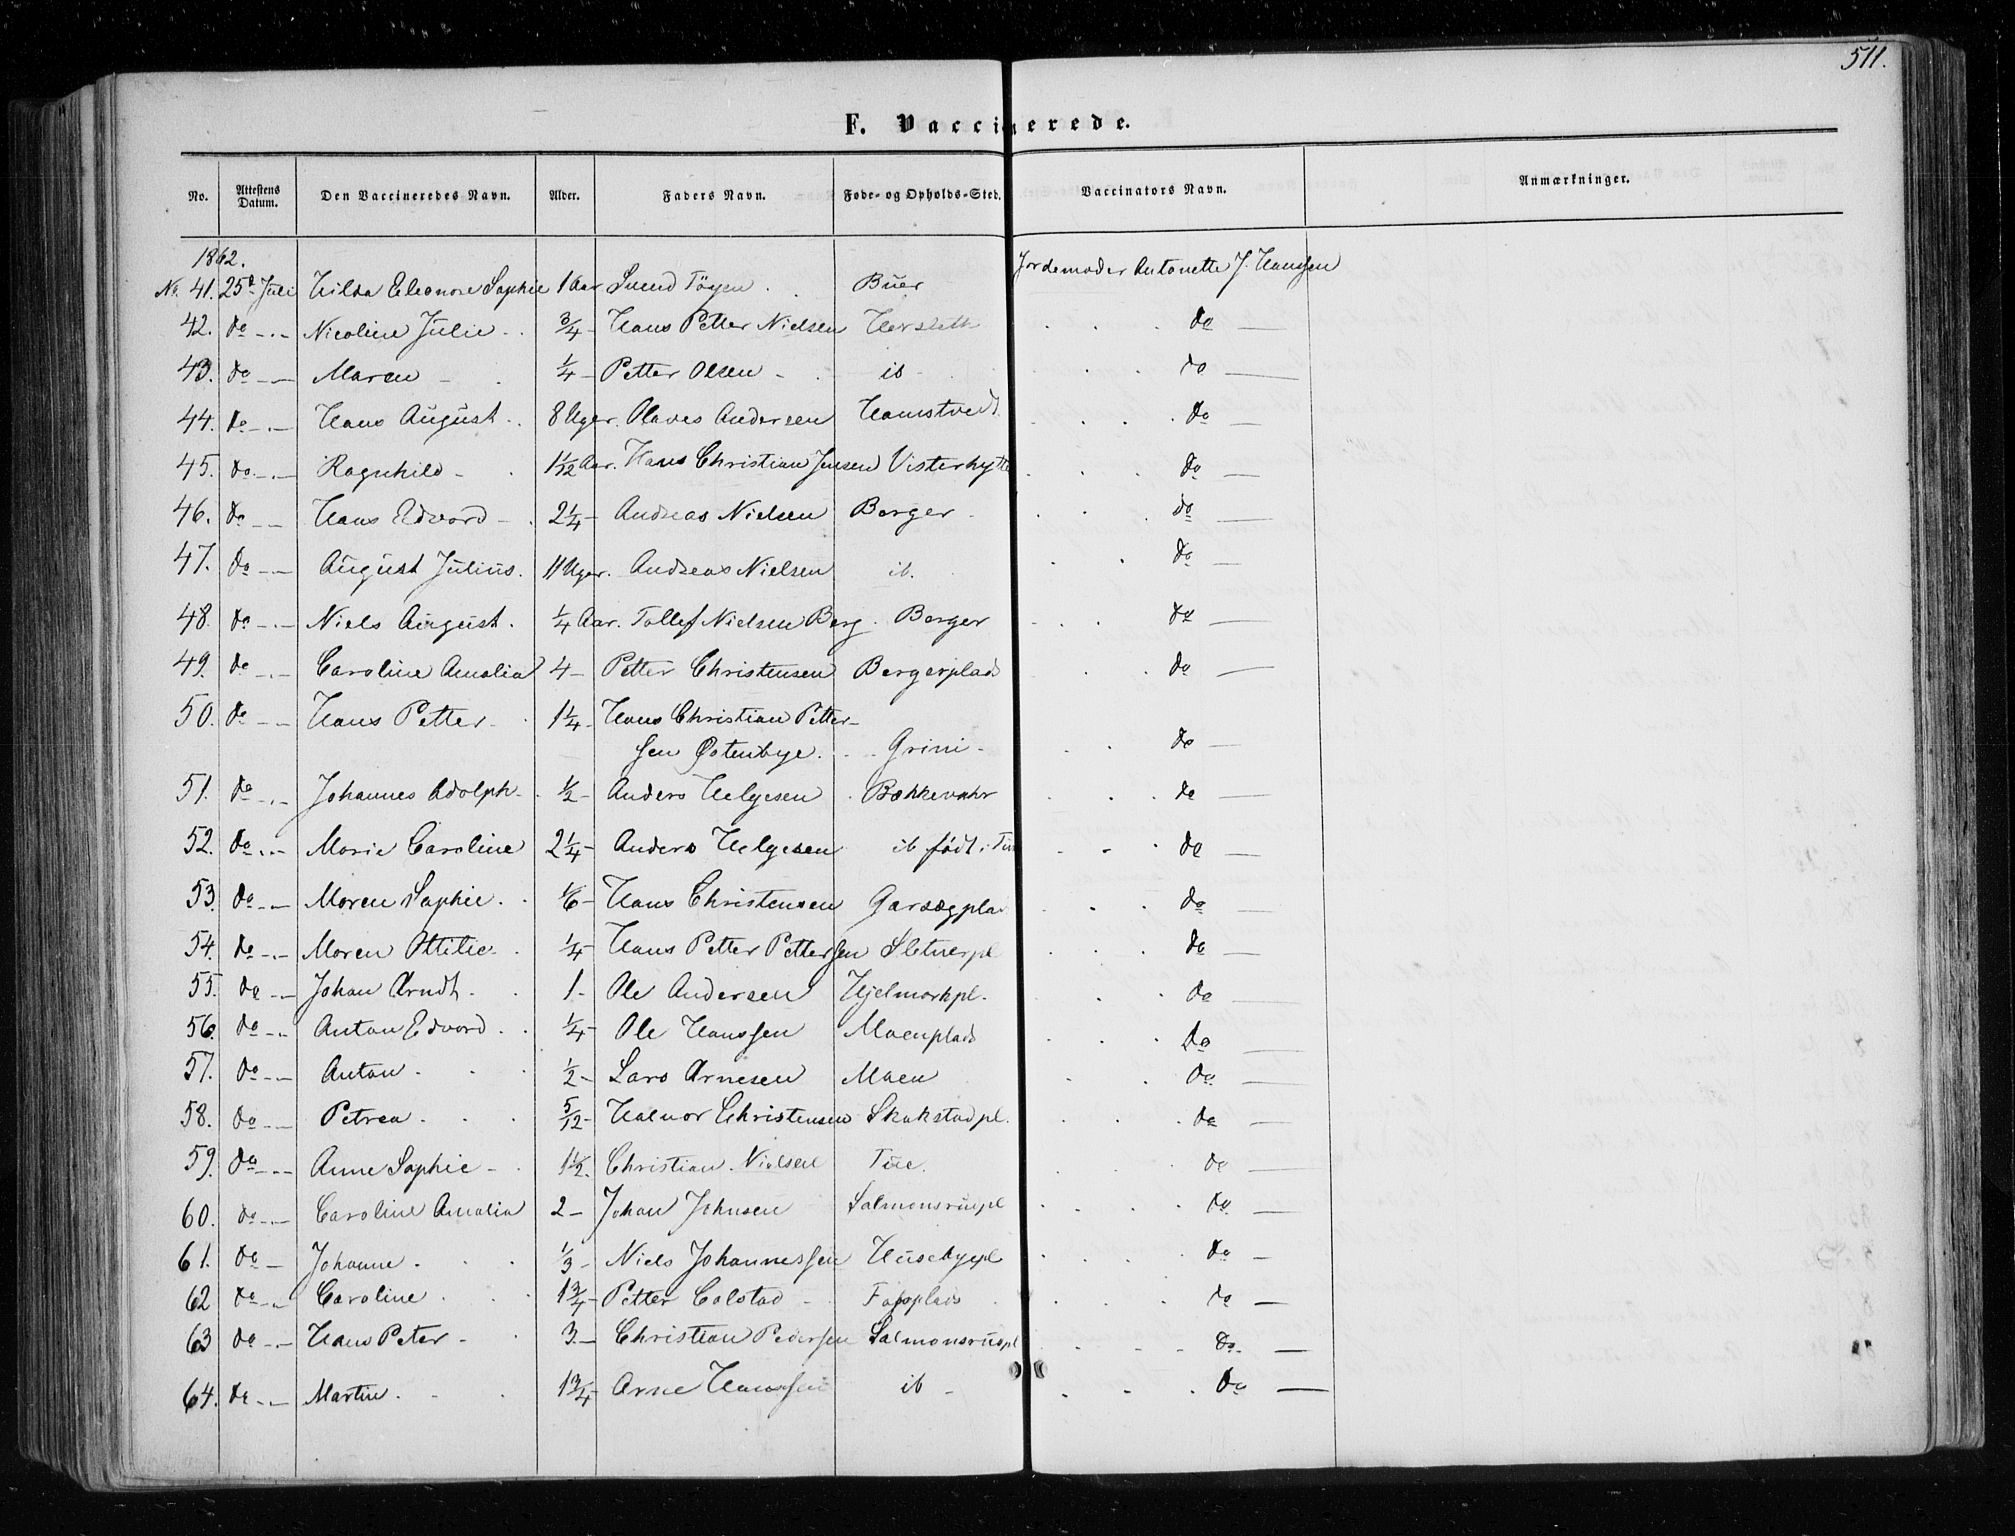 511.
F. Vaccinerede.
No. Attestens Datum. Den Vaccineredes Navn. Alder. Faders Navn. Føde- og Opholds-Sted. Vaccinators Navn. Anmærkninger.
1862.
No. 41. 25d Juli Hilda Eleonore Sophie 1 Aar Svend Töyen Buer Jordemoder Antonette J. Hanssen
42. do Nicoline Julie 3/4 Hans Petter Nielsen Harsleth do
43. do Maren 1/4 Petter Olsen ib do
44. do Hans August 8 Uger. Olaves Andersen Hamstvedt do
45. do Ragnhild 1 1/12 Aar. Hans Christian Jensen Visterhytte do
46. do Hans Edvard 2 1/4 Andreas Nielsen Berger do
47. do August Julius. 11 Uger. Andreas Nielsen ib. do
48. do Niels August. 1/4 Aar. Tollef Nielsen Berg Berger do
49. do Caroline Amalia 4 Petter Christensen Bergerplads do
50. do Hans Petter 1 1/4 Hans Christian Petter-
sen Østenbye. Grini do
51. do Johannes Adolph 1/2 Anders Helgesen Bækkevahr do
52. do Marie Caroline 2 1/4 Anders Helgesen ib født i do
53. do Maren Sophie 1/6 Hans Christensen Garsegplad do
54. do Maren Ottilie 1/4 Hans Petter Pettersen Sletnerpl do
55. do Johan Arndt 1 Ole Andersen Hjelmarkpl. do
56. do Anton Edvard 1/4 Ole Hanssen Moenplads do
57. do Anton 1/2 Lars Arnesen Moen do
58. do Petrea 5/12 Halvor Christensen Skakstadpl. do
59. do Anne Sophie 1 1/2 Christian Nielsen Tue. do
60. do Caroline Amalia 2 Johan Johnsen Salmonsrudpl do
61. do Johanne 1/3 Niels Johannessen Husebyepl do
62 do Caroline 1 3/4 Petter Colstad Fossplads do
63 do Hans Peter 3 Christian Pedersen Salmonsrudpl do
64. do Martin 1 3/4 Arne Hanssen ib do